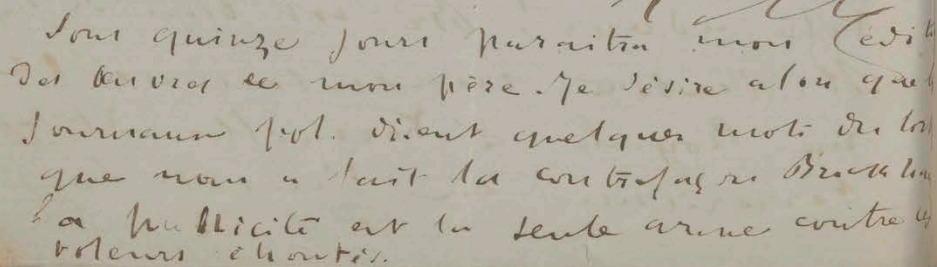 Sous quinze jours paraitra mon édit
des œuvres de mon père. Je désire alors que
journaux pol. disent quelques mots du tort
que nous a fait la contrefaçon
La publicité est la seule arme contre les
voleurs éhontés.